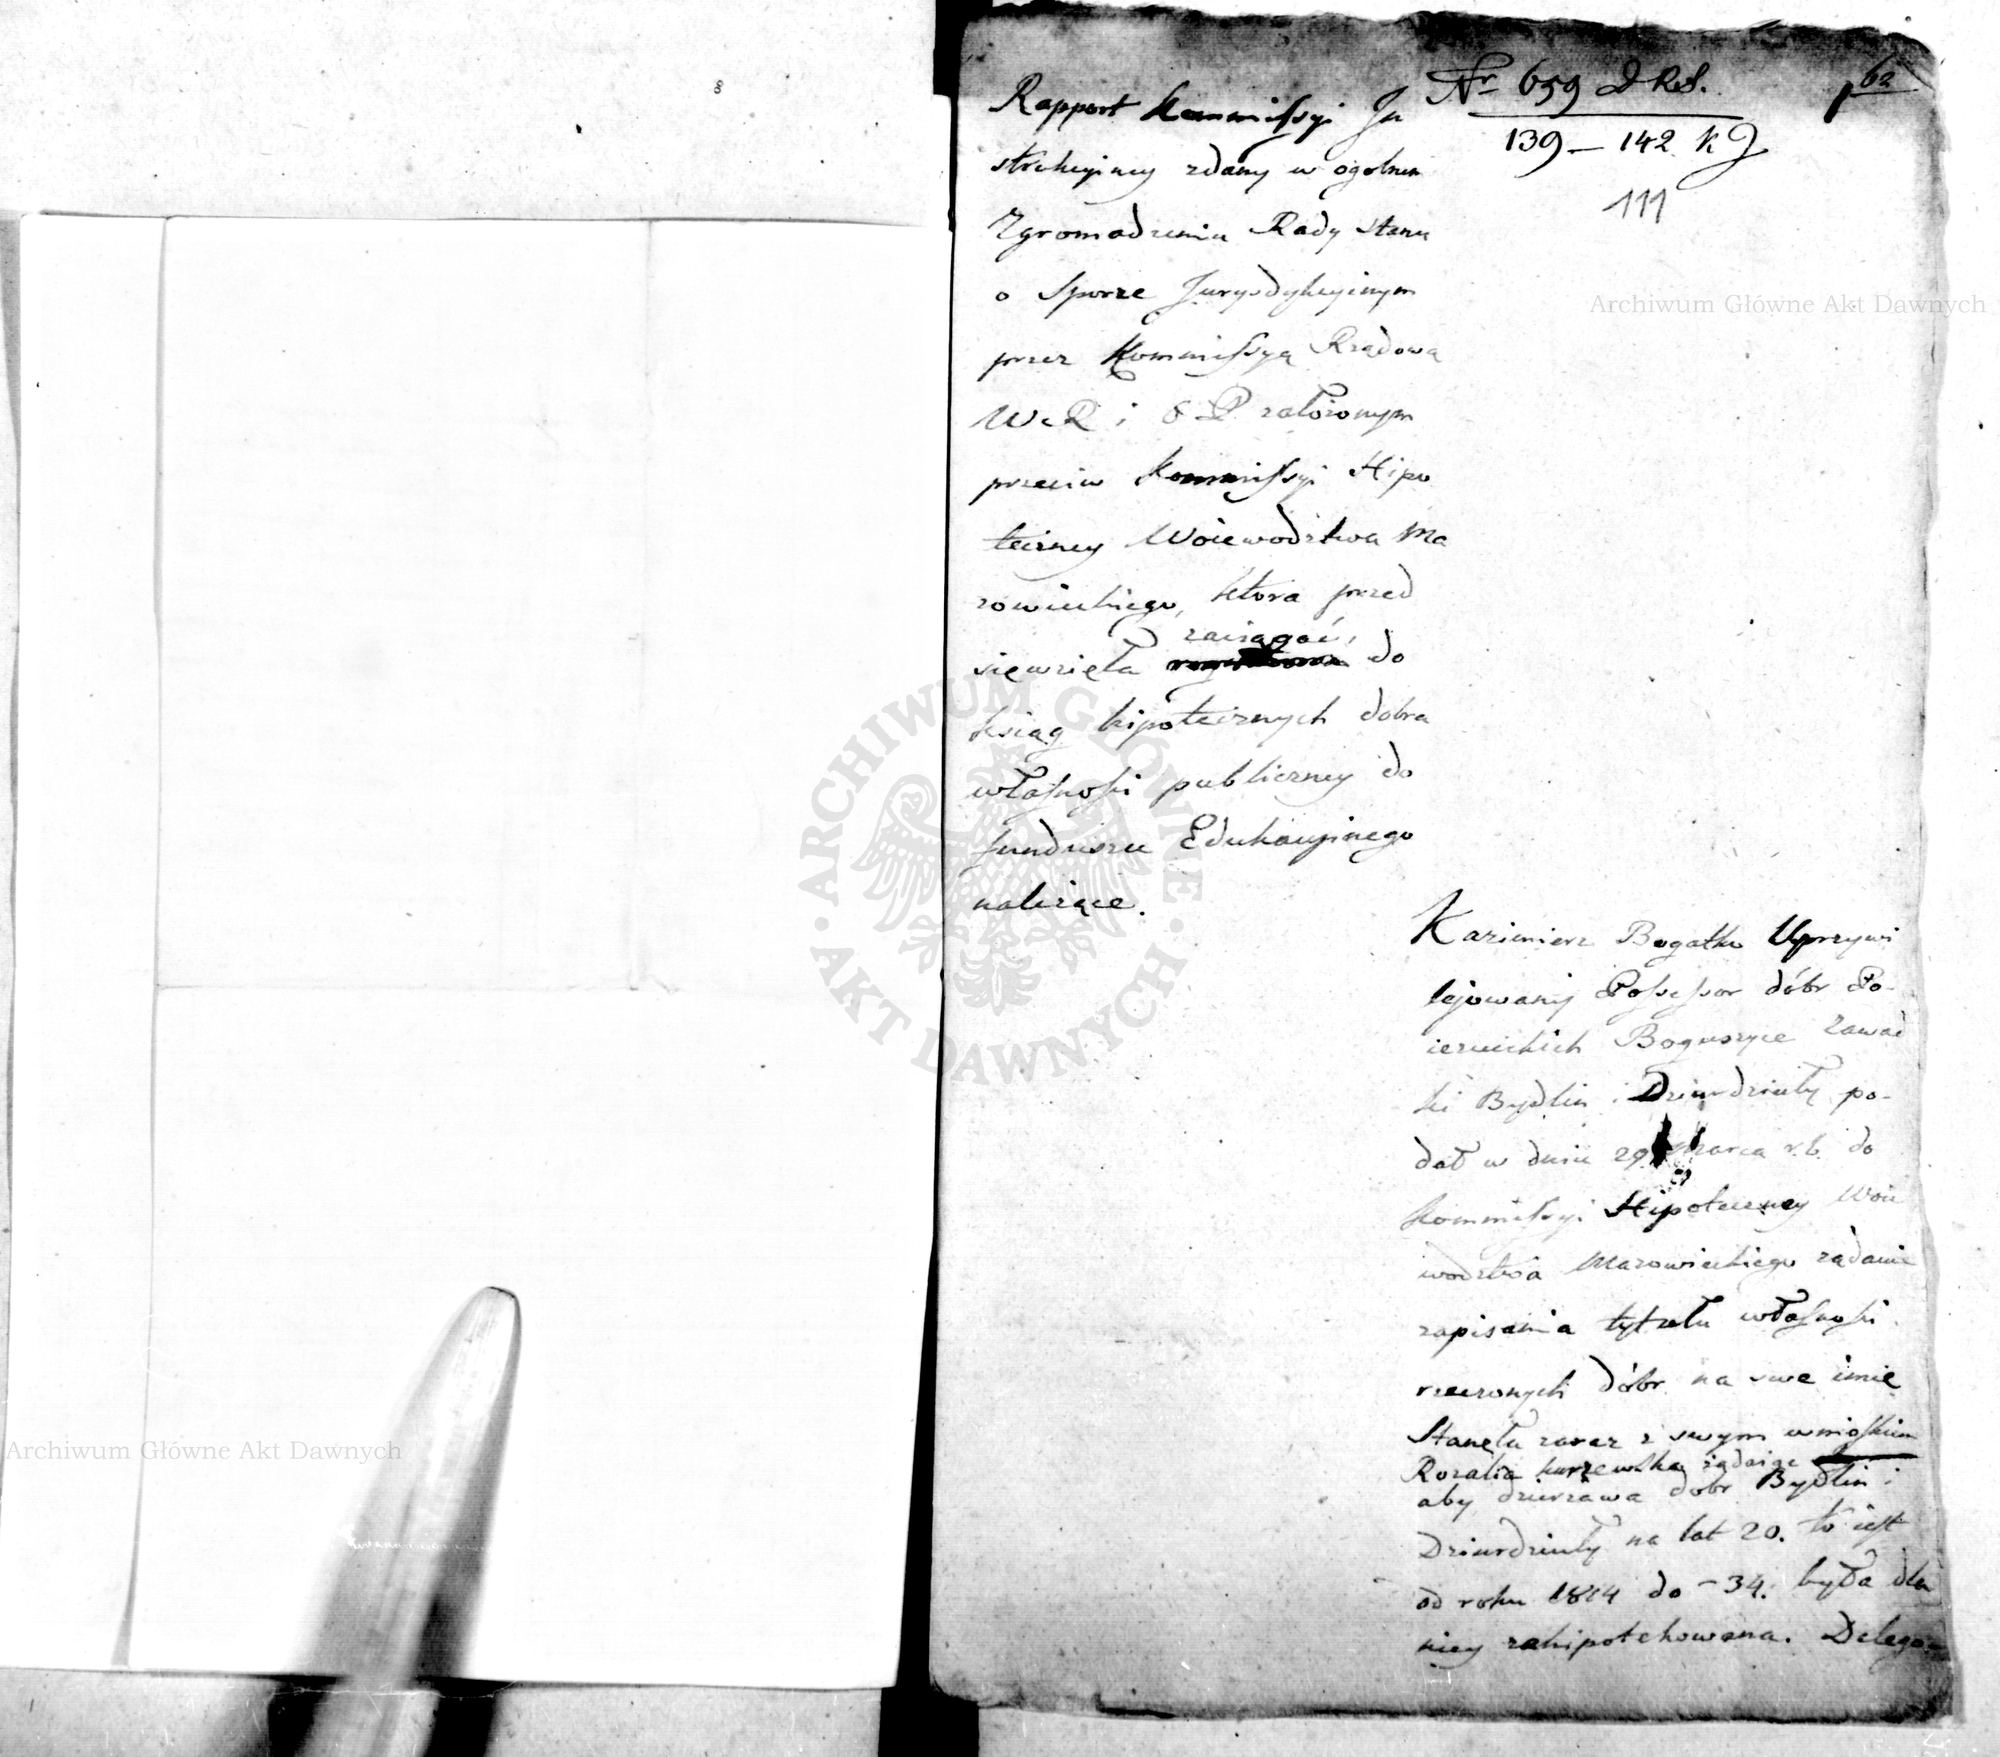 Rapport Kommissyi In
strukcyiney zdany w ogolnem
Zgromadzeniu Rady Stanu
o Sporze Jurysdykcyinym
przez Kommissyą Rządową
W. R i O P. założonym
przeciw Kommissyi Hipo
teczney Woiewodztwa Ma
zowieckiego, ktora przed
sięwzięła zaciągać, do
ksiąg hipotecznych dobra
własności publiczney do
funduszu Edukacyinego
należące.
Nr 659 D Rs.
139 — 142 k J
111
62
Kazimierz Bogatko Uprzywi
lejowany Possessor dóbr Po-
iezuickich Boguszyce Zawad
ki Bydlin i Dziurdzioły po-
dał w dniu 29 Marca r. b. do
Kommissyi Hipoteczney Woie
wodztwa Mazowieckiego żądanie
zapisania tytułu własności
rzeczonych dóbr na swe imie
Stanęła zaraz z swym wnioskiem
Rozalia Kurzewska żądaiąc
aby dzierzawa dobr Bydlin i
Dziurdzioły na lat 20. to iest
od roku 1814 do -34. była dla
niey zahipotekowana. Delego-
Archiwum Główne Akt Dawnych
Archiwum Główne Akt Dawnych
ARCHIWUM GŁÓWNE · AKT DAWNYCH ·